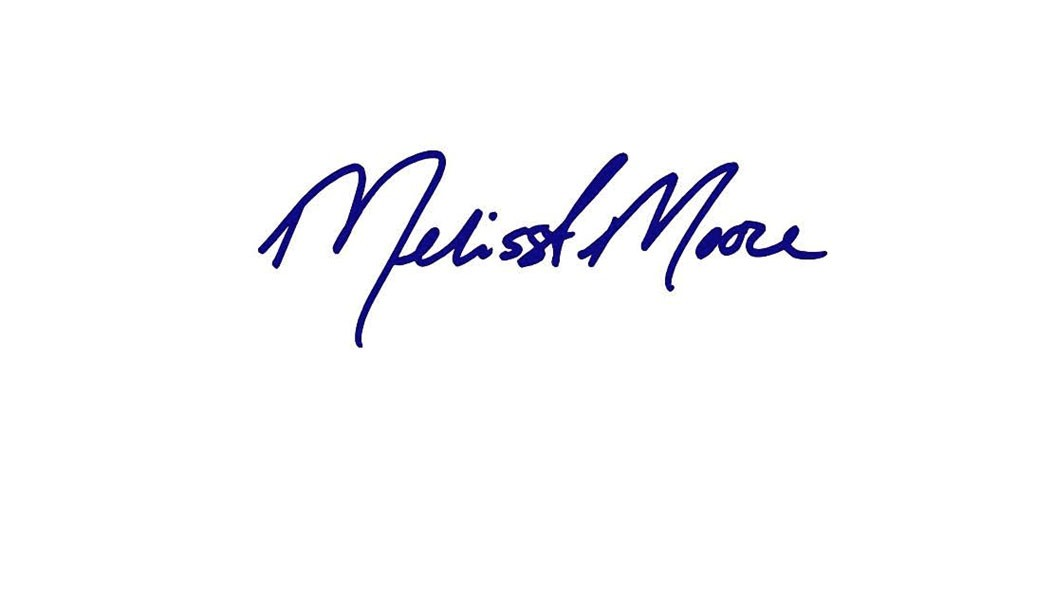 Melissa Moore